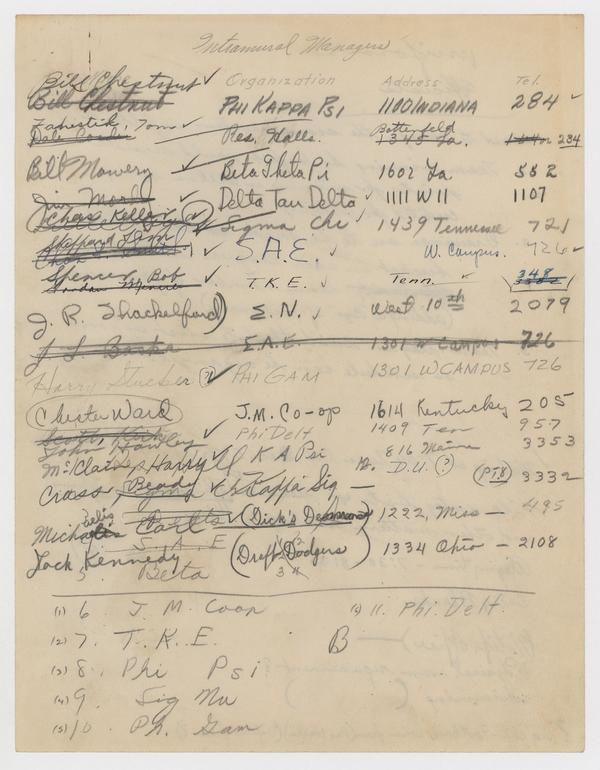 Intramural Managers
Bill Chestnut ✓ Organization Address Tel.
Bill Chestnut PHI KAPPA PSI 1100 INDIANA 284 ✓
Tom ✓ Res. Halls. Battenfeld
1345 La. 234
Bill Mowery ✓ Beta Theta Pi 1602 La 552
✓ Delta Tau Delta ✓ 1111 W 11 1107
Chas. Keller (2) Sigma Chi ✓ 1439 Tennessee 721
S.A.E. ✓ W. Campus. 726 ✓
Spencer, Bob ✓ T.K.E. ✓ Tenn. ✓ 348
J. R. Shackelford) Σ.N. ✓ West 10th 2079
E.A.E. 1301 W Campus 726
Harry (?) ✓ PHI GAM 1301 W CAMPUS 726
Chester Ward J.M. CO-OP 1614 Kentucky 205
Scott, Kirk ✓ Phi Delt 1409 Ten 957
John Hawley
McClain, Harry K A Psi 816 Maine 3353
D.U. (?) 3332
Cross Kappa Sig —
(Dick's) 1222, Miss — 495
S. A. E
Jack Kennedy (Draft Dodgers) 1334 Ohio — 2108
5. Beta
(1) 6. J. M. Coop 11. Phi. Delt.
(2) 7. T. K. E. B
(3) 8. Phi Psi
(4) 9. Sig Nu
(5) 10. Ph. Gam